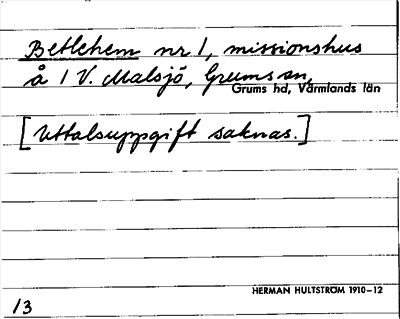 Betlehem nr 1, missionshus
å 1 V. Malsjö, Grums sn,
Grums hd, Värmlands län
[Uttalsuppgift saknas.]
HERMAN HULTSTRÖM 1910–12
13